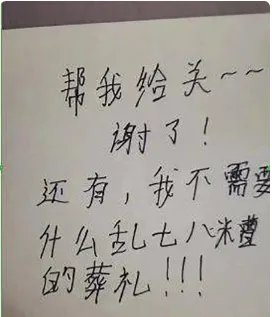 帮我给关~~
谢了!
还有,我不需要
什么乱七八糟
的葬礼!!!